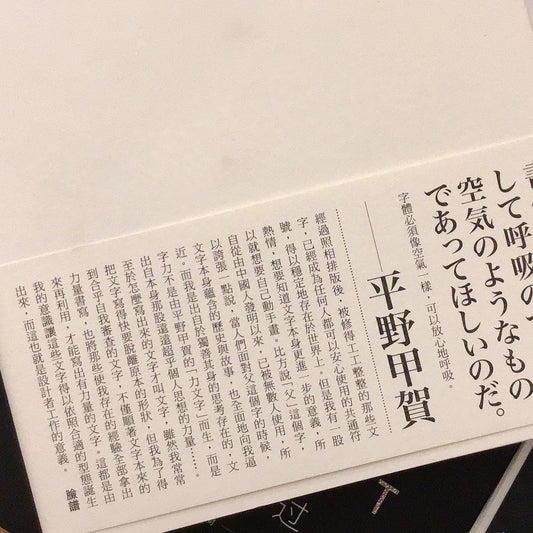 して呼吸の
空気のようなもの
であってほしいのだ。
字體必須像空氣一樣，可以放心地呼吸。
——平野甲賀
經過照相排版後，被修得工工整整的那些文
字，已經成為任何人都可以安心使用的共通符
號，得以穩定地存在於世界上。但是我有一股
熱情，想要知道文字本身更進一步的意義，所
以就想要自己動手畫。比方說「父」這個字，
自從由中國人發明以來，已被無數人使用，所
以誇張一點說，當人們面對父這個字的時候，
文字本身蘊含的歷史與故事，也全面地向我逼
近。而我是出自於獨善其身的思考存在的，文
字力不是由平野甲賀的「力文字」而生，而是
出自本身那股遠遠超乎個人思想的力量……
至於怎麼寫出來的文字才叫文字，雖然我常常
把文字寫得快要脫離原本的形狀，但我為了得
到合乎自我審查的文字，不僅順著文字本來的
力量書寫，也將那些使我存在的經驗全部拿出
來再利用，才能寫出有力量的文字。這都是由
我的意識讓這些文字得以依照合適的型態誕生
出來，而這也就是設計者工作的意義。
臉譜
过
T